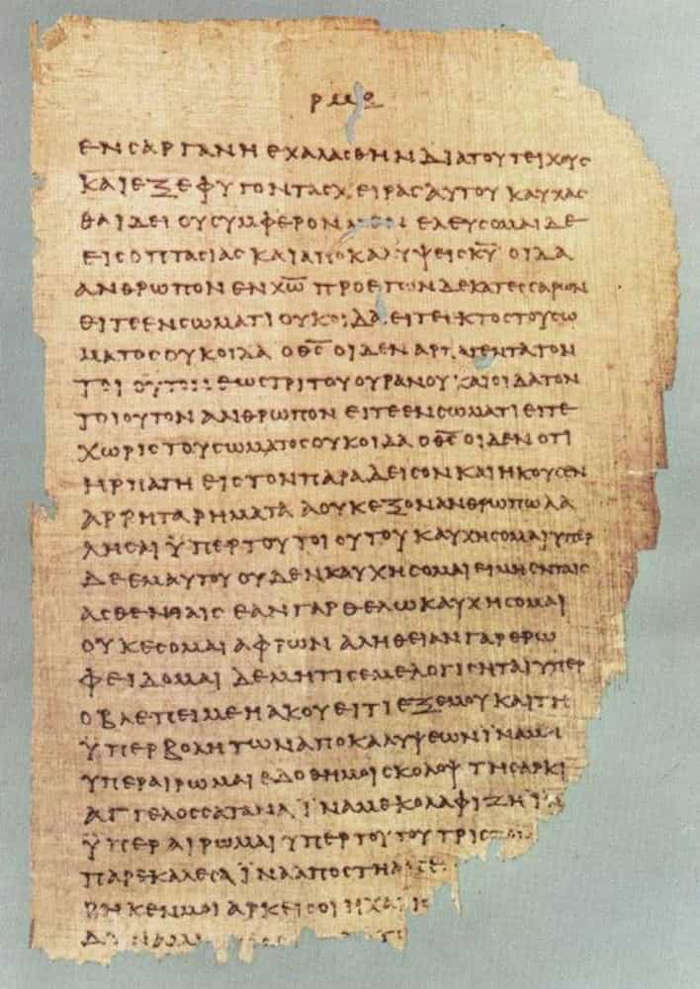 ρμθ
ΕΝ ΣΑΡΓΑΝΗ ΕΧΑΛΑΣΘΗΝ ΔΙΑ ΤΟΥ ΤΕΙΧΟΥΣ
ΚΑΙ ΕΞΕΦΥΓΟΝ ΤΑΣ ΧΕΙΡΑΣ ΑΥΤΟΥ ΚΑΥΧΑΣ
ΘΑΙ ΔΕΙ ΟΥ ΣΥΜΦΕΡΟΝ ΕΛΕΥΣΟΜΑΙ ΔΕ
ΕΙΣ ΟΠΤΑΣΙΑΣ ΚΑΙ ΑΠΟΚΑΛΥΨΕΙΣ Κ̅Υ̅ ΟΙΔΑ
ΑΝΘΡΩΠΟΝ ΕΝ Χ̅Ω̅ ΠΡΟ ΕΤΩΝ ΔΕΚΑΤΕΣΣΑΡΩΝ
ΕΙΤΕ ΕΝ ΣΩΜΑΤΙ ΟΥΚ ΟΙΔΑ ΕΙΤΕ ΕΚΤΟΣ ΤΟΥ ΣΩ
ΜΑΤΟΣ ΟΥΚ ΟΙΔΑ Ο Θ̅Σ̅ ΟΙΔΕΝ ΑΡΠΑΓΕΝΤΑ ΤΟΝ
ΤΟΙΟΥΤΟΝ ΕΩΣ ΤΡΙΤΟΥ ΟΥΡΑΝΟΥ ΚΑΙ ΟΙΔΑ ΤΟΝ
ΤΟΙΟΥΤΟΝ ΑΝΘΡΩΠΟΝ ΕΙΤΕ ΕΝ ΣΩΜΑΤΙ ΕΙΤΕ
ΧΩΡΙΣ ΤΟΥ ΣΩΜΑΤΟΣ ΟΥΚ ΟΙΔΑ Ο Θ̅Σ̅ ΟΙΔΕΝ ΟΤΙ
ΗΡΠΑΓΗ ΕΙΣ ΤΟΝ ΠΑΡΑΔΕΙΣΟΝ ΚΑΙ ΗΚΟΥΣΕΝ
ΑΡΡΗΤΑ ΡΗΜΑΤΑ Α ΟΥΚ ΕΞΟΝ ΑΝΘΡΩΠΩ ΛΑ
ΛΗΣΑΙ ΫΠΕΡ ΤΟΥ ΤΟΙΟΥΤΟΥ ΚΑΥΧΗΣΟΜΑΙ ΥΠΕΡ
ΔΕ ΕΜΑΥΤΟΥ ΟΥΔΕΝ ΚΑΥΧΗΣΟΜΑΙ ΕΙ ΜΗ ΕΝ ΤΑΙΣ
ΑΣΘΕΝΕΙΑΙΣ ΕΑΝ ΓΑΡ ΘΕΛΩ ΚΑΥΧΗΣΟΜΑΙ
ΟΥΚ ΕΣΟΜΑΙ ΑΦΡΩΝ ΑΛΗΘΕΙΑΝ ΓΑΡ ΕΡΩ
ΦΕΙΔΟΜΑΙ ΔΕ ΜΗ ΤΙΣ ΕΜΕ ΛΟΓΙΣΗΤΑΙ ΥΠΕΡ
Ο ΒΛΕΠΕΙ ΜΕ Η ΑΚΟΥΕΙ ΤΙ ΕΞ ΕΜΟΥ ΚΑΙ ΤΗ
ΫΠΕΡΒΟΛΗ ΤΩΝ ΑΠΟΚΑΛΥΨΕΩΝ ΪΝΑ ΜΗ
ΥΠΕΡΑΙΡΩΜΑΙ ΕΔΟΘΗ ΜΟΙ ΣΚΟΛΟΨ ΤΗ ΣΑΡΚΙ
ΑΓΓΕΛΟΣ ΣΑΤΑΝΑ ΪΝΑ ΜΕ ΚΟΛΑΦΙΖΗ
ΫΠΕΡΑΙΡΩΜΑΙ ΥΠΕΡ ΤΟΥΤΟΥ ΤΡΙΣ
ΠΑΡΕΚΑΛΕΣΑ ΪΝΑ ΑΠΟΣΤΗ
ΡΗΚΕΝ ΜΟΙ ΑΡΚΕΙ ΣΟΙ Η ΧΑΡΙΣ